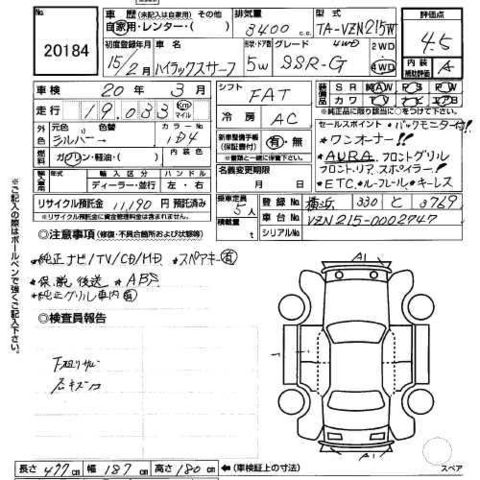 No.
20184
車歴 (未記入は自家用) その他
自家用・レンター・( )
排気量
3400 c.c.
型式
TA-VZN215W
評価点
4.5
初度登録年月
15/2月
車名
ハイラックスサーフ
形状・ドア数
5W
グレード
SSR-G
4WD
2WD
4WD
内装
補助評価
A
車検
20年 3月
シフト
FAT
走行
19,033
km
マイル
冷房
AC
外色
元色 色替
シルバー→
カラーNo.
1D4
燃料
ガソリン・軽油・( )
新車整備手帳
(保証書付)
有・無
※書類と一緒に保管下さい。
※純正品に限り○を付けて下さい。
セールスポイント *バックモニター付!!
*ワンオーナー!!
*AURA.フロントグリル
フロント.リア.スポイラー!
*ETC.*ルーフレール*キーレス
輸入車
輸入区分
ディーラー・並行
ハンドル
左・右
名義変更期限
月 日
リサイクル預託金 11,190 円 預託済み
※リサイクル預託金に資金管理料金は含まれます。
乗車定員
5人
積載量
t
登録No.
横浜 330 と 3769
車台No.
VZN215-0002747
シリアルNo.
◎注意事項 (修復・不具合箇所および状態等)
*純正ナビ/TV/CD/MD *スペアキー有
*保.取.後送 *ABS
*純正グリル車内有
◎検査員報告
下廻りサビ
※ご記入の際はボールペンで強くご記入下さい。
A1
A1
スペア
長さ 477cm 幅 187cm 高さ 180cm ←(車検証上の寸法)